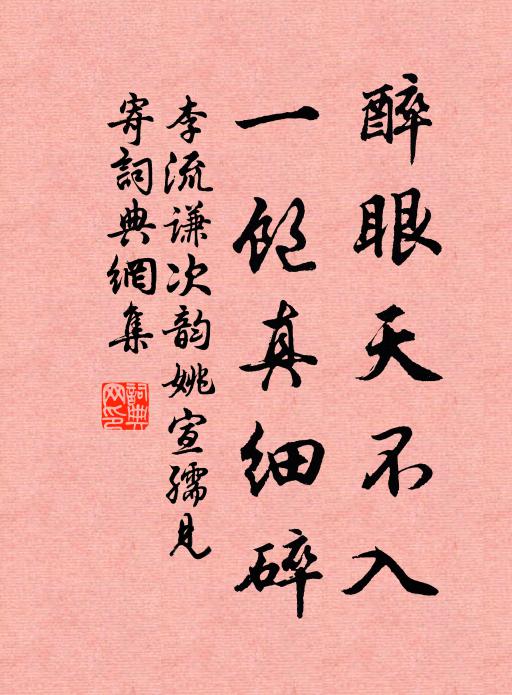 醉眼天不入
一飽真細碎
李流謙次韵姚宣孺見
寄詞典網集
詞典
网印